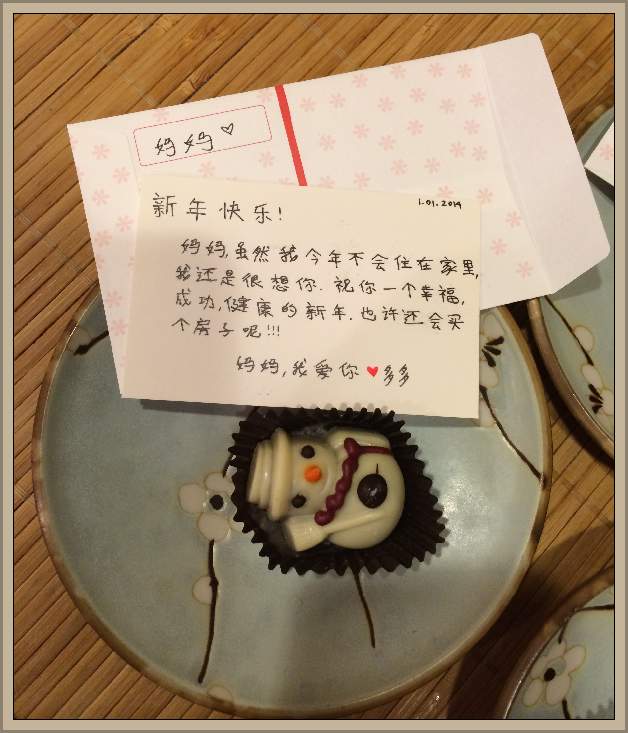 妈妈♡
新年快乐!
1.01.2014
妈妈,虽然我今年不会住在家里,
我还是很想你.祝你一个幸福,
成功,健康的新年.也许还会买
个房子呢!!!
妈妈,我爱你♥多多